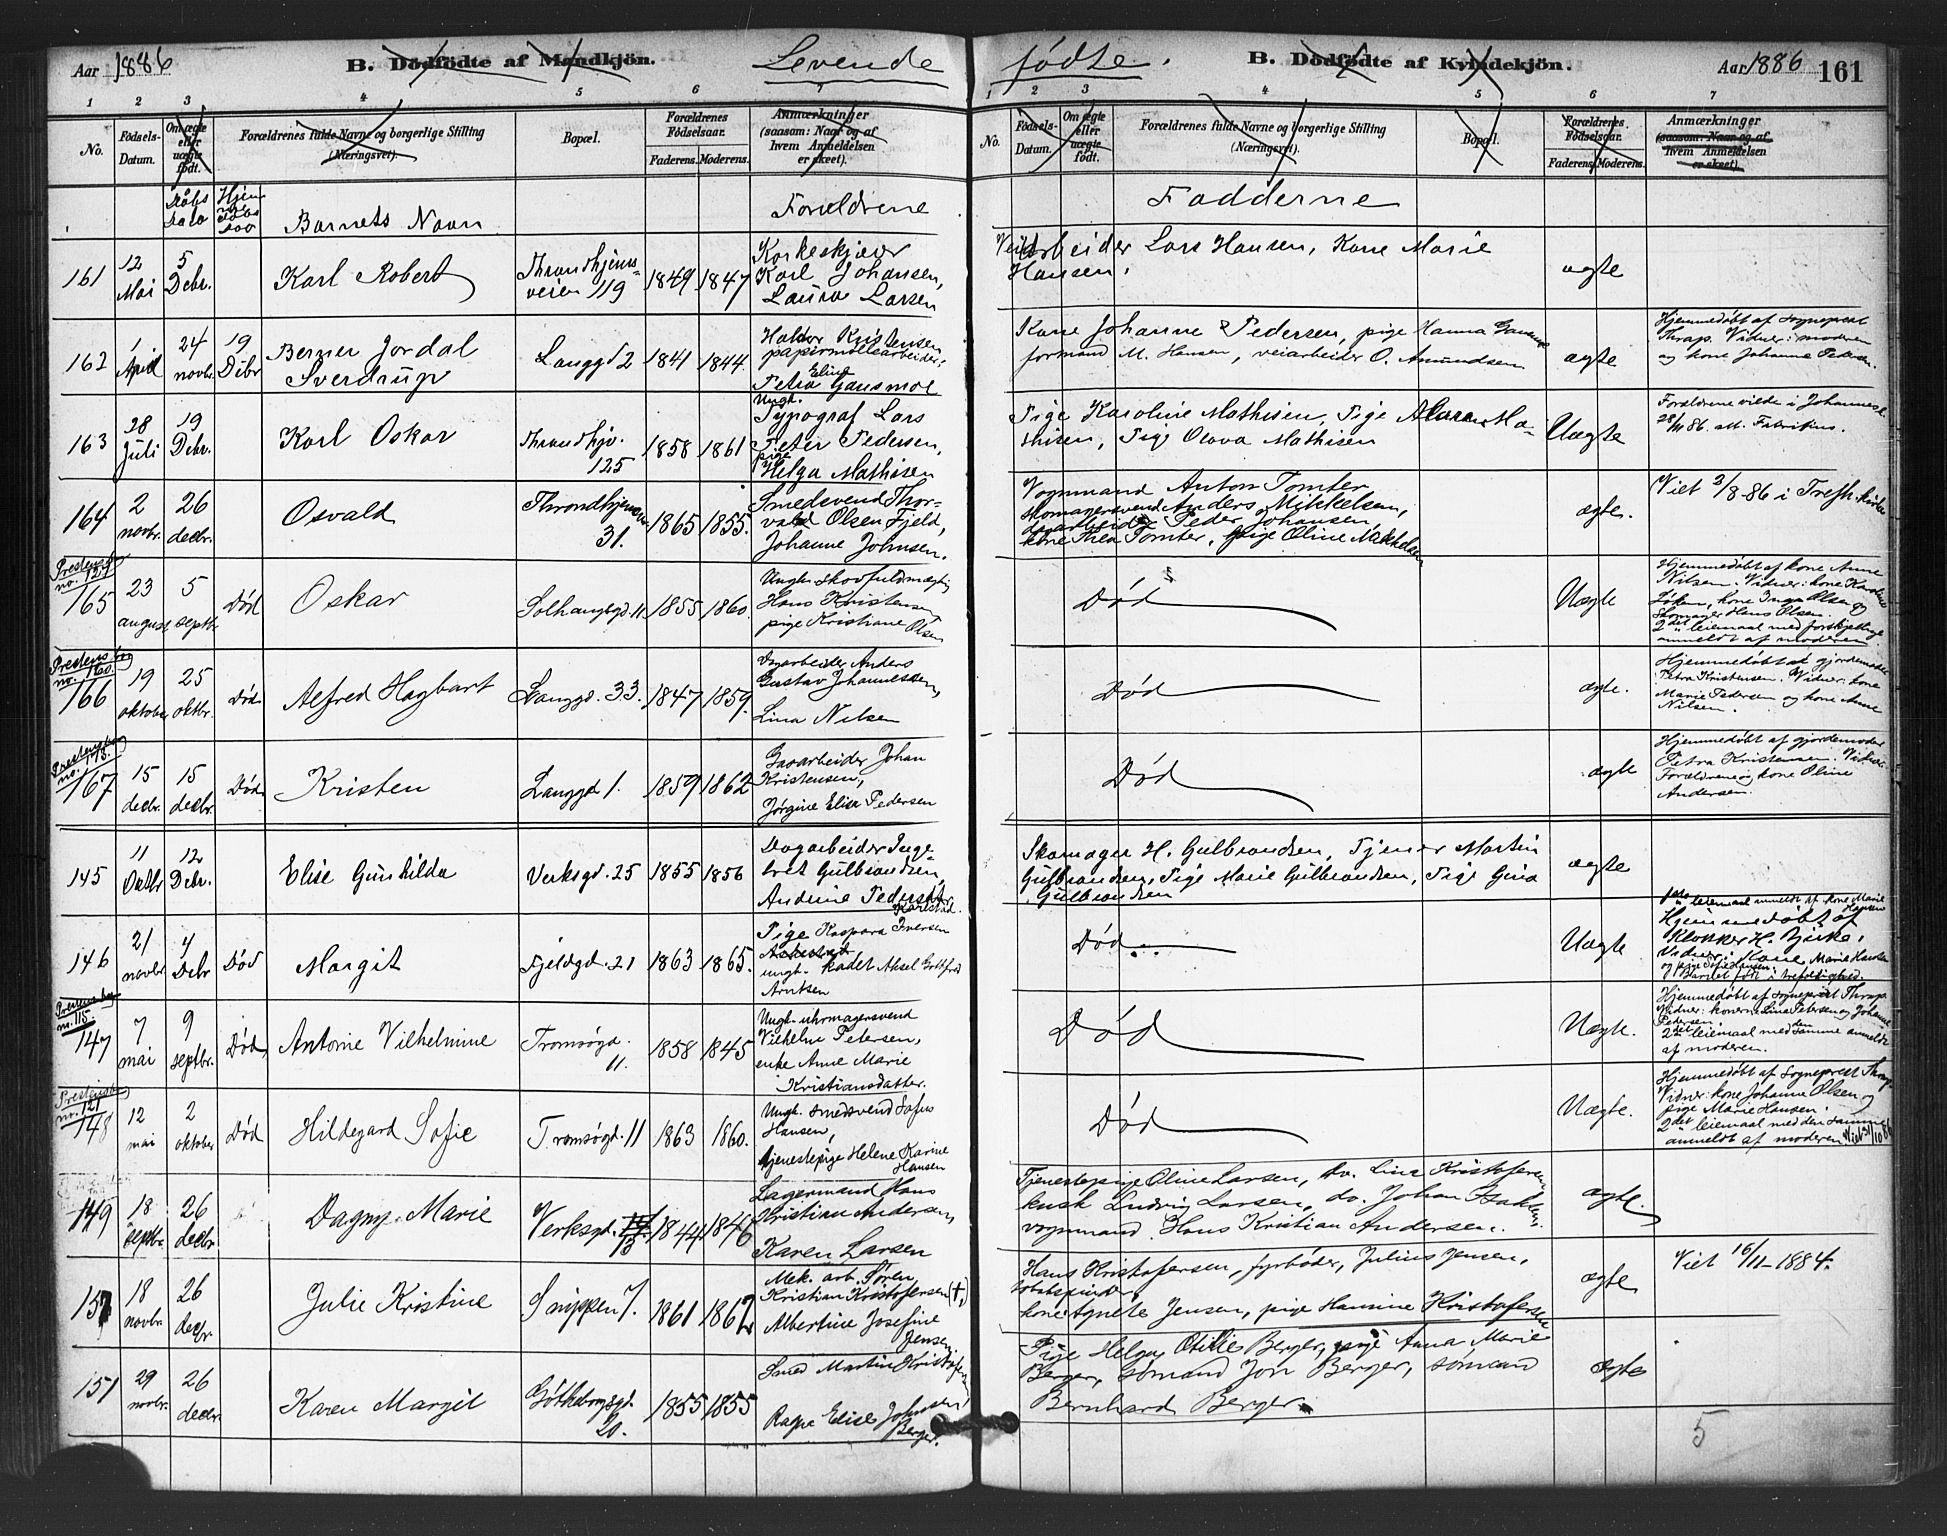 Aar 1886 B. Dødfødte af Mandkjøn. Levende
fødte. B. Dødfødte af Kvindekjøn. Aar 1886 161
1 2 3 4 5 6 7
1 2 3 4 5 6 7
No. Fødsels-Datum. Om ægte eller uægte født. Forældrenes fulde Navne og borgerlige Stilling (Næringsvei). Bopæl. Forældrenes Fødselsaar. Faderens. Moderens. Anmærkninger (saasom: Naar og af hvem Anmeldelsen er skeet).
No. Fødsels-Datum. Om ægte eller uægte født. Forældrenes fulde Navne og borgerlige Stilling (Næringsvei). Bopæl. Forældrenes Fødselsaar. Faderens. Moderens. Anmærkninger (saasom: Naar og af hvem Anmeldelsen er skeet).
Døbs Dato Hjemmedøbs Barnets Navn Forældrene Fadderne
161 12 Mai 5 Decbr. Karl Robert Throndhjemsveien 119 1849 1847 Korkeskjærer Karl Johansen, Laura Larsen
Veiarbeider Lars Hansen, Kone Marie Hansen. ægte
162 1 April 24 novbr. 19 Dcbr Berner Jordal Sverdrup Langgd 2 1841 1844. Halvor Kristensen papirmøllearbeider, Petra Eline Gausmoe
Kone Johanne Pedersen, pige Hanna formand M. Hansen, veiarbeider O. Amundsen ægte Hjemmedøbt af Sogneprest Thrap. Vidner: moderen og kone Johanne Pedersen.
163 28 Juli 19 Decbr. Karl Oskar Throndhjv. 125 1858 1861 Ungk. Typograf Lars Peter Pedersen, pige Helga Mathisen
Pige Karoline Mathisen, Pige Mathisen, Pige Olava Mathisen Uægte Forældrene viede i 28/11 86.
164 2 novbr. 26 decbr. Osvald Throndhjemsv. 31. 1865 1855. Smedesvend Thorvald Olsen Fjeld, Johanne Johnsen.
Vognmand Anton Tomter skomagersvend Anders Mikkelsen, dagarbeider Peder Johansen, kone Thea Tomter, pige Oline Mikkelsen ægte. Viet 3/8-86 i Trefh. kirke
Prestens bog no. 129
165 23 august 5 septbr Død Oskar Solhauggd. 11 1855 1860. Ungk. skovfuldmægtig Hans Kristensen pige Kristiane Olsen
Død Uægte Hjemmedøbt af kone Anne Nilsen. Vidner: kone Karoline kone Inga Olsen og Skomager Hans Olsen. 2det leiemaal med forskjellige anmeldt af moderen.
Prestens bog no. 160.
166 19 oktober 25 oktbr. Død Alfred Hagbart Langgd. 33. 1847 1859. Dagarbeider Anders Gustav Johannessen, Lina Nilsen
Død ægte. Hjemmedøbt af gjordemoder Petra Kristensen. Vidner: kone Marie Pedersen og kone Anne Nilsen.
Prestens bog no. 173.
167 15 decbr. 15 decbr. Død Kristen Langgd 1. 1859 1862 Gasarbeider Johan Kristensen, Jørgine Elisa Pedersen
Død ægte Hjemmedøbt af gjordemoder Petra Kristensen. Vidner: Forældrene og kone Oline Andersen.
145 11 Oktbr 12 Decbr. Elise Gunhilda Verksgd. 25 1855 1856 Dagarbeider Ingebret Gulbrandsen, Andrine Pedersdtr. Karlstad.
Skomager H. Gulbrandsen, Tjener Martin Gulbrandsen, Pige Marie Gulbrandsen, Pige Gina Gulbrandsen ægte
146 21 novbr. 4 Debr Død Margit Fjeldgd. 21 1863 1865. Pige Kaspara Iversen ungk. kadet Aksel Gottfred Arntsen
Død. Uægte 1ste leiemaal anmeldt af kone Marie Hansen Hjemmedøbt af Klokker H. Bjerke. Vidner: Kone Marie Hansen og pige Sofie Hansen. Barnet født i trefoldighed.
Prestens bog nr. 115.
147 7 mai 9 septbr. Død Antonie Vilhelmine Tromsøgd. 11. 1858 1845 Ungk. uhrmagersvend Vilhelm Petersen, enke Anne Marie Kristiansdatter.
Død Uægte. Hjemmedøbt af sogneprest Thrap. Vidner: konerne Lina Petersen og Johanne Pedersen 2det leiemaal med den samme anmeldt af moderen.
Prestens bog nr. 121
148 12 mai 2 oktober Død Hildegard Sofie Tromsøgd. 11 1863 1860. Ungk. smedsvend Sofus Hansen, tjenestepige Helene Karine Hansen
Død Uægte. Hjemmedøbt af Sogneprest Thrap. Vidner: kone Johanne Olsen og pige Marie Hansen. 2det leiemaal med den samme anmeldt af moderen Viet 31/10 86
149 18 septbr. 26 decbr. Dagny Marie Verksgd. 13 1844 1846 Lagermand Hans Kristian Andersen, Karen Larsen
Tjenestepige Oline Larsen, do. Lina Kristofersen kusk Ludvig Larsen, do. Johan Isaksen vognmand Hans Kristian Andersen. ægte.
150 18 novbr. 26 decbr. Julie Kristine Snippen 7. 1861 1862 Mek. arb. Søren Kristian Kristofersen (†), Albertine Josefine Jensen
Hans Kristofersen, fyrbøder, Julius Jensen, tobakspinder, kone Agnete Jensen, pige Hansine Kristofersen ægte Viet 16/11-1884.
151 29 novbr. 26 decbr. Karen Margit Gøtheborggd. 20. 1855 1855 Smed Martin Kristofersen Elise Johnsen Berger.
Pige Helga Otilie Berger, pige Anna Marie Berger, sømand Jon Berger, sømand Bernhard Berger. ægte
5